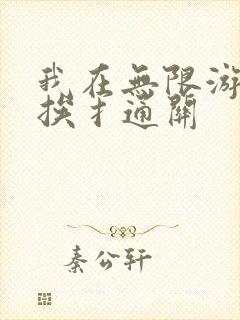 我在無限游
挨扌通關
秦公轩